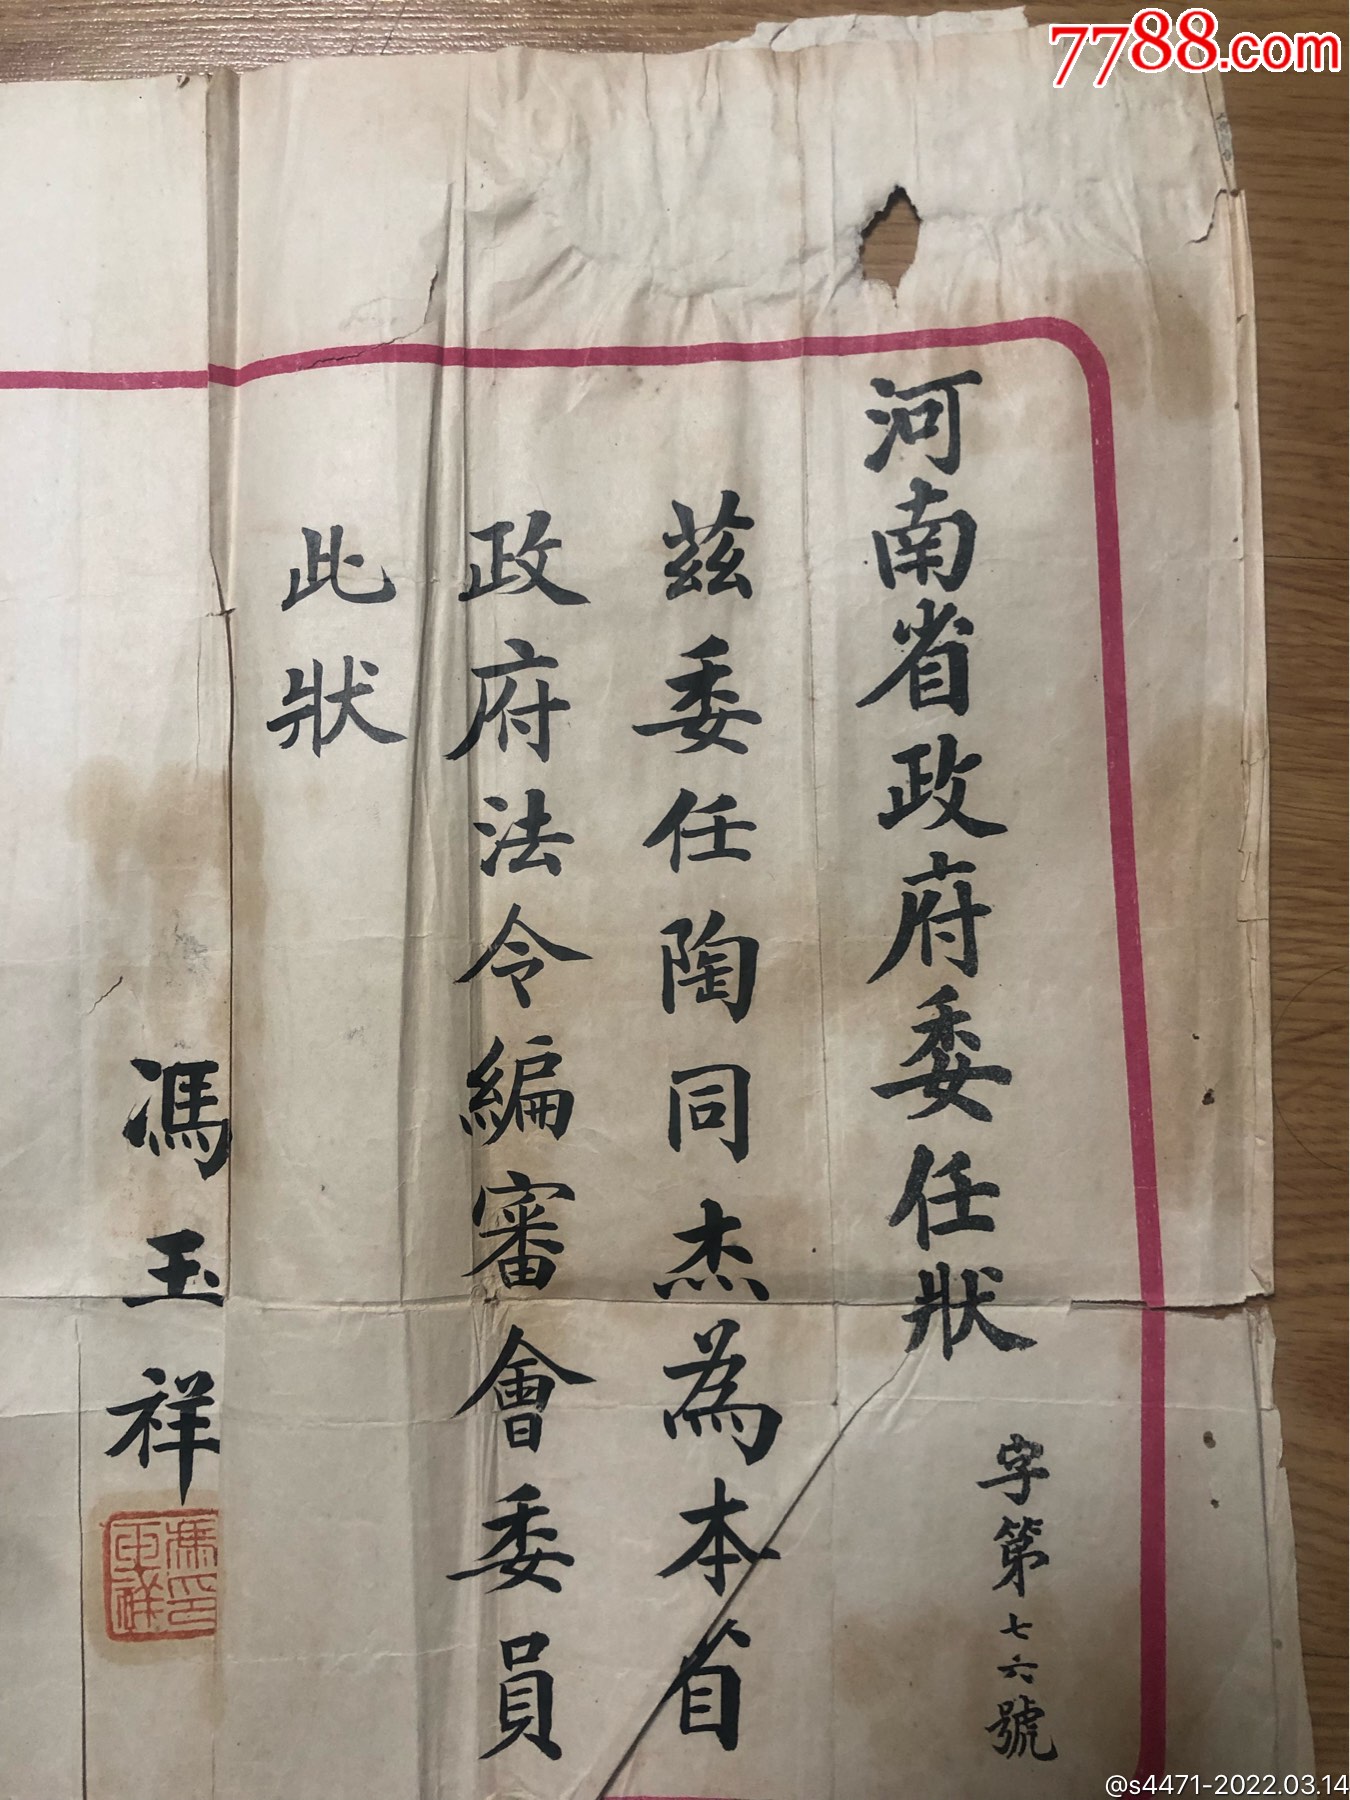 7788.com
河南省政府委任狀
字第七六號
茲委任陶同杰為本省
政府法令編審會委員
此狀
馮玉祥
馮玉祥印
@s4471-2022.03.14